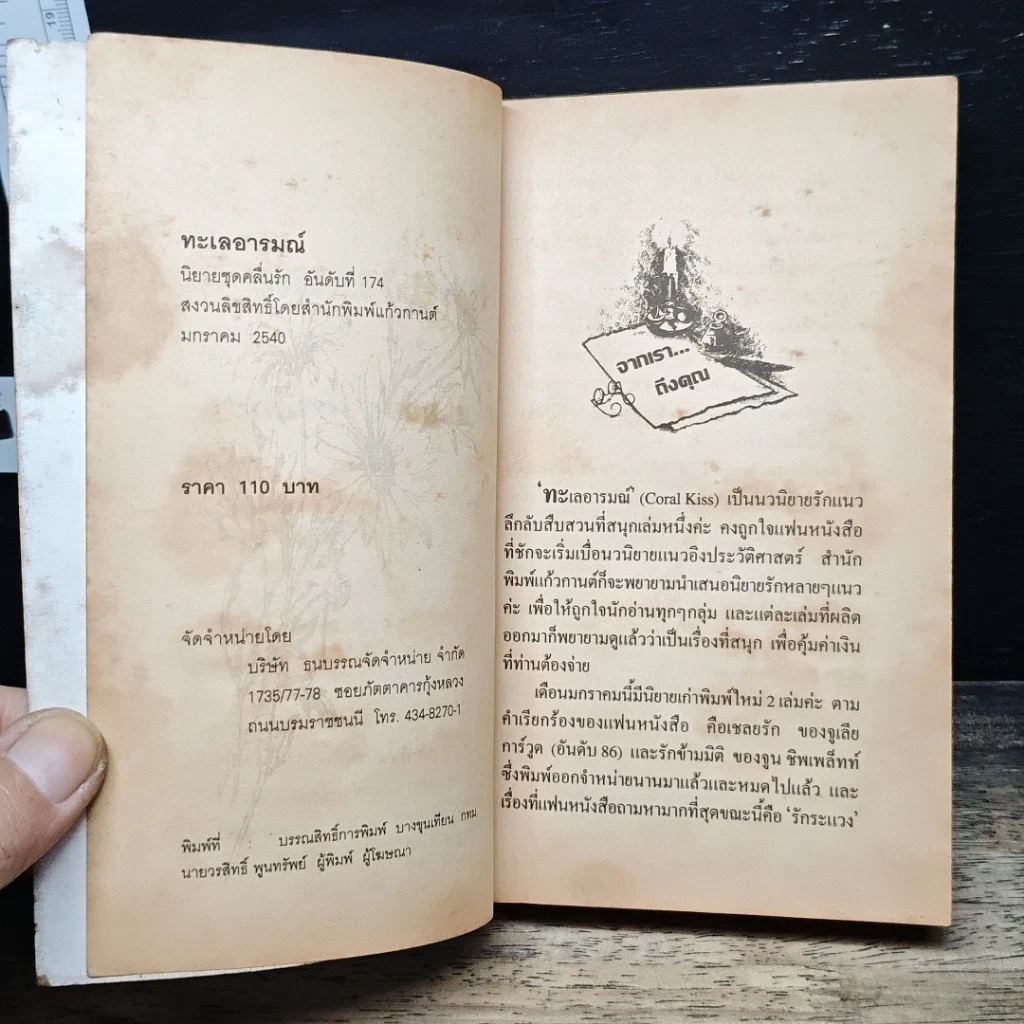 19
ทะเลอารมณ์
นิยายชุดคลื่นรัก อันดับที่ 174
สงวนลิขสิทธิ์โดยสำนักพิมพ์แก้วกานต์
มกราคม 2540
ราคา 110 บาท
จัดจำหน่ายโดย
บริษัท ธนบรรณจัดจำหน่าย จำกัด
1735/77-78 ซอยภัตตาคารกุ้งหลวง
ถนนบรมราชชนนี โทร. 434-8270-1
พิมพ์ที่ : บรรณสิทธิ์การพิมพ์ บางขุนเทียน กทม.
นายวรสิทธิ์ พูนทรัพย์ ผู้พิมพ์ ผู้โฆษณา
จากเรา...
ถึงคุณ
'ทะเลอารมณ์' (Coral Kiss) เป็นนวนิยายรักแนว
ลึกลับสืบสวนที่สนุกเล่มหนึ่งค่ะ คงถูกใจแฟนหนังสือ
ที่ชักจะเริ่มเบื่อนวนิยายแนวอิงประวัติศาสตร์ สำนัก
พิมพ์แก้วกานต์ก็จะพยายามนำเสนอนิยายรักหลายๆแนว
ค่ะ เพื่อให้ถูกใจนักอ่านทุกๆกลุ่ม และแต่ละเล่มที่ผลิต
ออกมาก็พยายามดูแล้วว่าเป็นเรื่องที่สนุก เพื่อคุ้มค่าเงิน
ที่ท่านต้องจ่าย
เดือนมกราคมนี้มีนิยายเก่าพิมพ์ใหม่ 2 เล่มค่ะ ตาม
คำเรียกร้องของแฟนหนังสือ คือเชลยรัก ของจูเลีย
การ์วูด (อันดับ 86) และรักข้ามมิติ ของจูน ชิพเพล็ทท์
ซึ่งพิมพ์ออกจำหน่ายนานมาแล้วและหมดไปแล้ว และ
เรื่องที่แฟนหนังสือถามหามากที่สุดขณะนี้คือ 'รักระแวง'